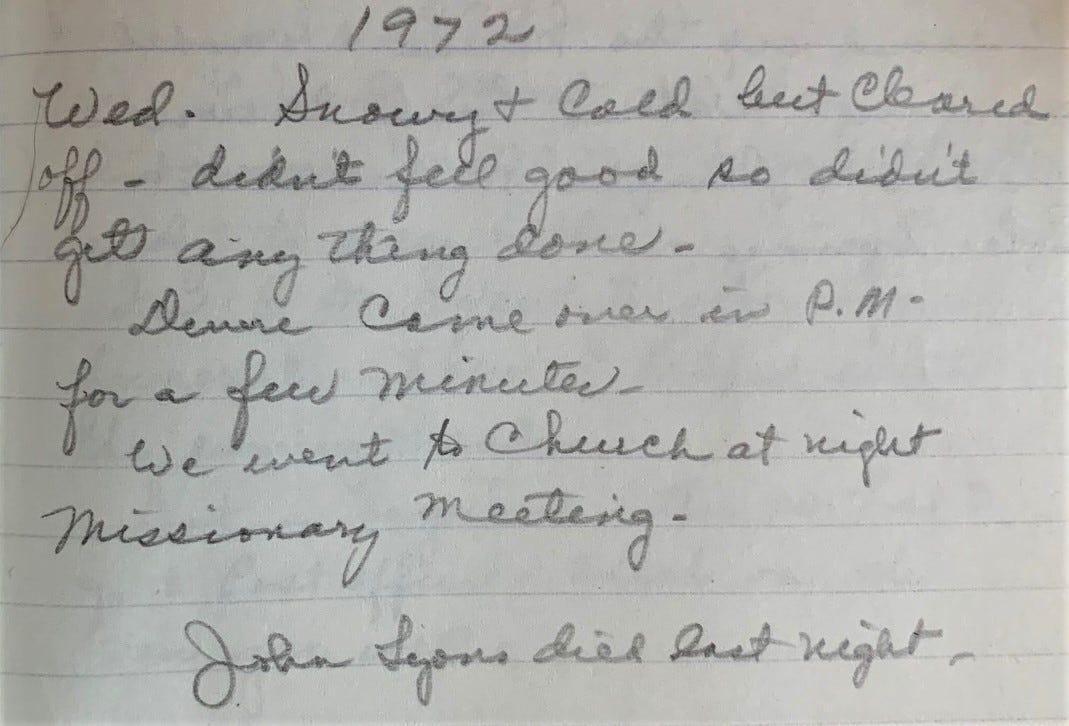 1972
Wed. Snowy + Cold but Cleared
off - didn't feel good so didn't
get any thing done -
Came over in P.M -
for a few minutes -
We went to Church at night
Missionary Meeting -
John Lyons died last night -